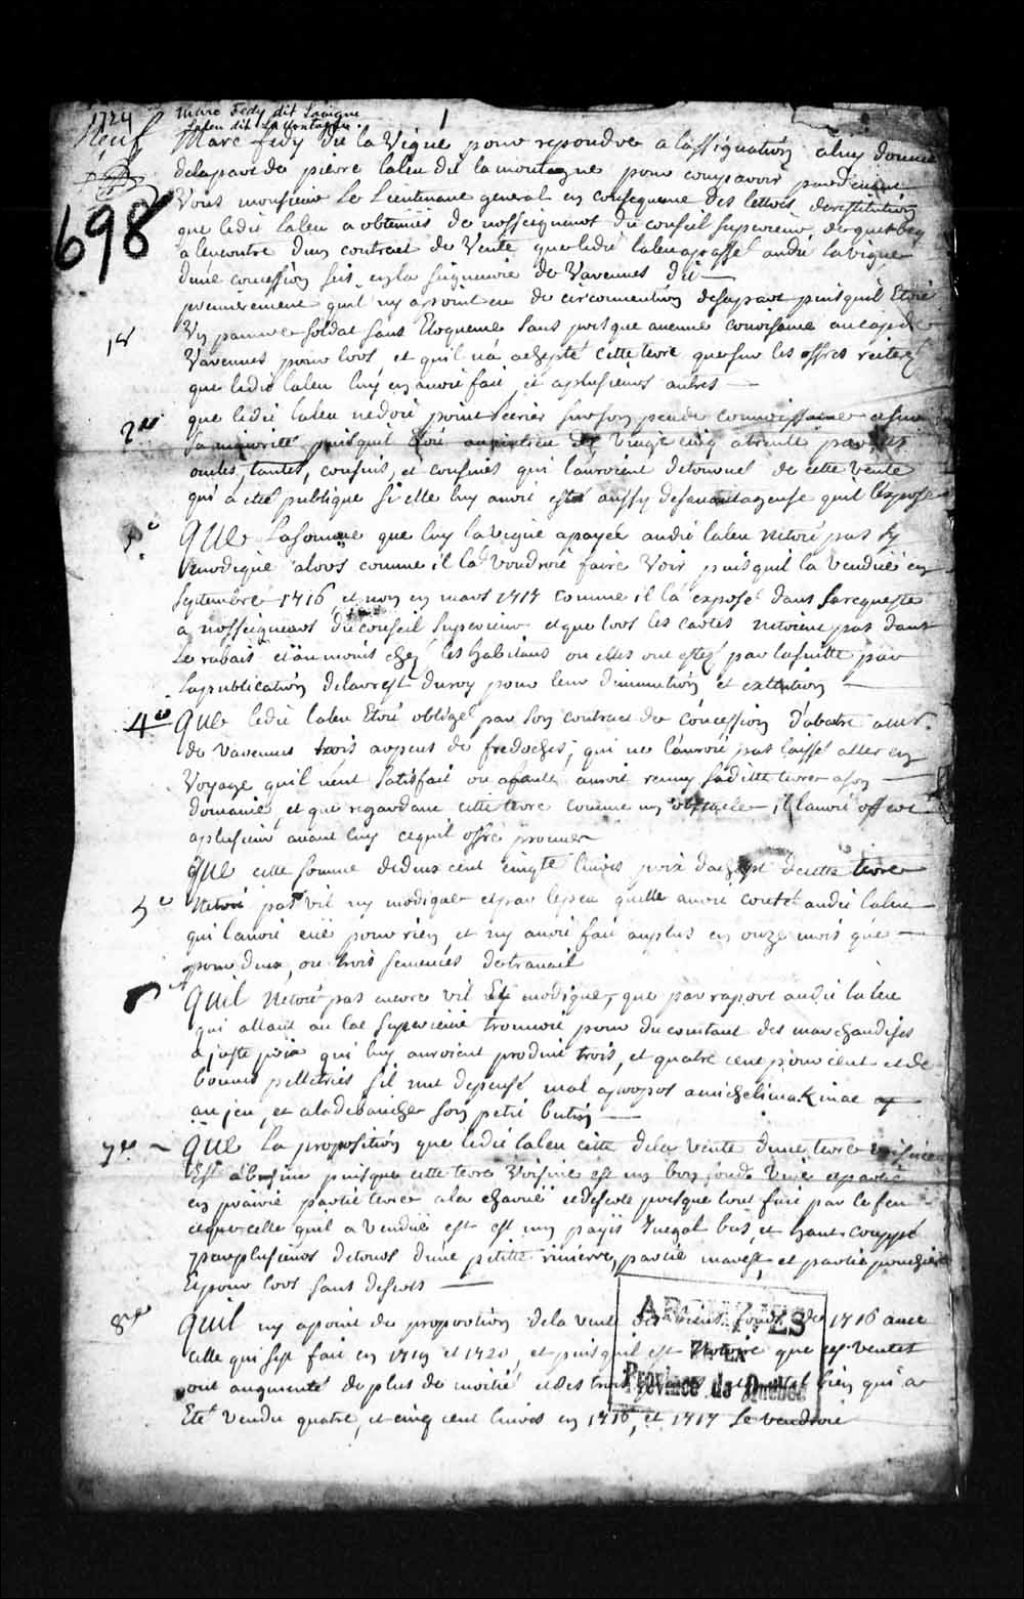 1724 Marc Fedy dit Lavigne
Laleu dit La Montagne
Neuf
698
Marc fedy dit la Vigne pour repondre a lassignation a luy donnee
delapart de pierre laleu dit la montagne pour comparoir pardevant
Vous monsieur Le Lieutenant general en consequence des lettres derestitution
que ledit laleu a obtenües de nosseigneurs du conseil superieur de quebecq
a lencontre dun contract de Vente queledit laleu a passé audit lavigne
dune concession sise en la seigneurie de Varennes dit
1er
premierement quil ny a point eu de circonvention desapart puisquil Etoit
Un pauvre soldat sans Eloquence sans presque aucune connoissance au cap de
Varennes pour lors et quil na achepté cette terre quesur les offres reiterez
que ledit laleu luy en avoit fait et a plusieurs autres
2e
que ledit laleu nedoit point serier sur son peu de connoissance et sur
sa minorité puisquil Etoit de Vingt cinq a trente par ses
oncles, tantes, cousins, et cousines qui lauroient detourné de cette vente
qui a eté publique si elle luy avoit esté aussy desavantageuse quil lexpose
3e
QUE Lasomme que luy lavigne a payée audit laleu netoit pas sy
modique alors comme il la Voudroit faire Voir puisquil la vendüe en
Septembre 1716 et non en mars 1717 comme il la exposé dans sarequeste
a nosseigneurs du conseil superieur et que lors les cartes netoient pas dans
Le rabais et au moins chez les habitans ou elles ont estez par lasuitte par
lapublication delarrest du roy pour leur diminution et extintion
4e
QUE ledit laleu Etoit obligé par son contract de concession d'abatre au sr
de varennes trois arpens de fredoches, qui ne lauroit pas laissé aller en
Voyage quil neut satisfait ou auroit remy saditte terre a son
domaine, et que regardant cette terre comme un obstacle, il lavoit offert
a plusieurs avant luy cequil offre prouver
5e
QUE cette somme dedeux cent cinqte livres prix dachapt decette terre
netoit pas vil ny modique et par lepeu quelle avoit couté audit laleu
qui lavoit eüe pour rien, et ny avoit fait auplus en onze mois que
pour deux, ou trois semaines detravail
6e
QUIL Netoit pas encore vil Et modique, que par raport audit laleu
qui allant au lac superieur trouvoit pour du contant des marchandises
a juste prix qui luy auroient produit trois, et quatre cent pour cent et de
bonnes pelletries sil neut depensé mal apropos a michelimakinac
au jeu, et aladebauche son petit butin
7e
QUE La proposition que ledit laleu citte dela vente dune terre voisine
Est puisque cette terre Voisine est un bon fond Unie et partie
en prairie partie terre a la charüe et deserte presque tout fait par le feu
et que celle quil a vendüe est est un payis Inegal bas, et haut couppé
par plusieurs detours dune petitte riviere, partie marest, et partie
Et pour lors sans deserts
8e
QUIL ny a point de proportion dela vente des biens fonds de 1716 avec
celle qui sest fait en 1719 et 1720, et puisquil est Notoire que les ventes
ont augmenté de plus de moitié et des trois bien qui a
Eté vendu quatre, et cinq cent livres en 1716, et 1717 Se vendroit
ARCHIVES
DE LA
Province de Québec